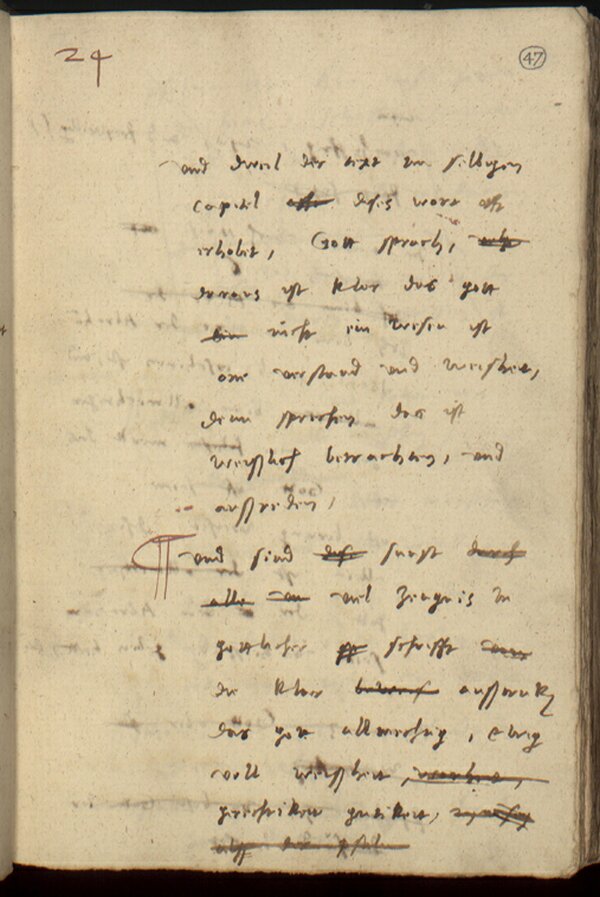 24
47
und dweil der text im selbigen
capitel dises wort oft
erholet, Gott sprach,
daraus ist klar das gott
nicht ein wesen ist
one verstand und weisheit,
denn sprechen das ist
weislich betrachten, und
aussreden,
¶ und sind sunst
vil zeugnis in
gottlicher schrifft
die klar aussdruken
das gott allmechtig, ewig
voll weissheit,
gerechtikeit gutikeit,